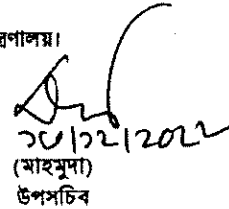 ত্রণালয়।
১৮/১২/২০২২
(মাহমুদা)
উপসচিব